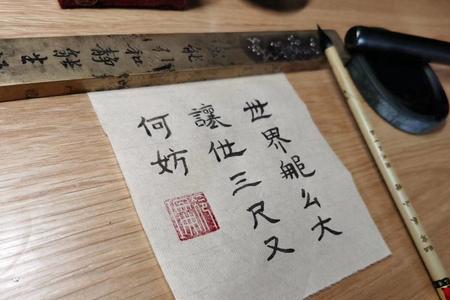 世界那么大
讓他三尺又
何妨